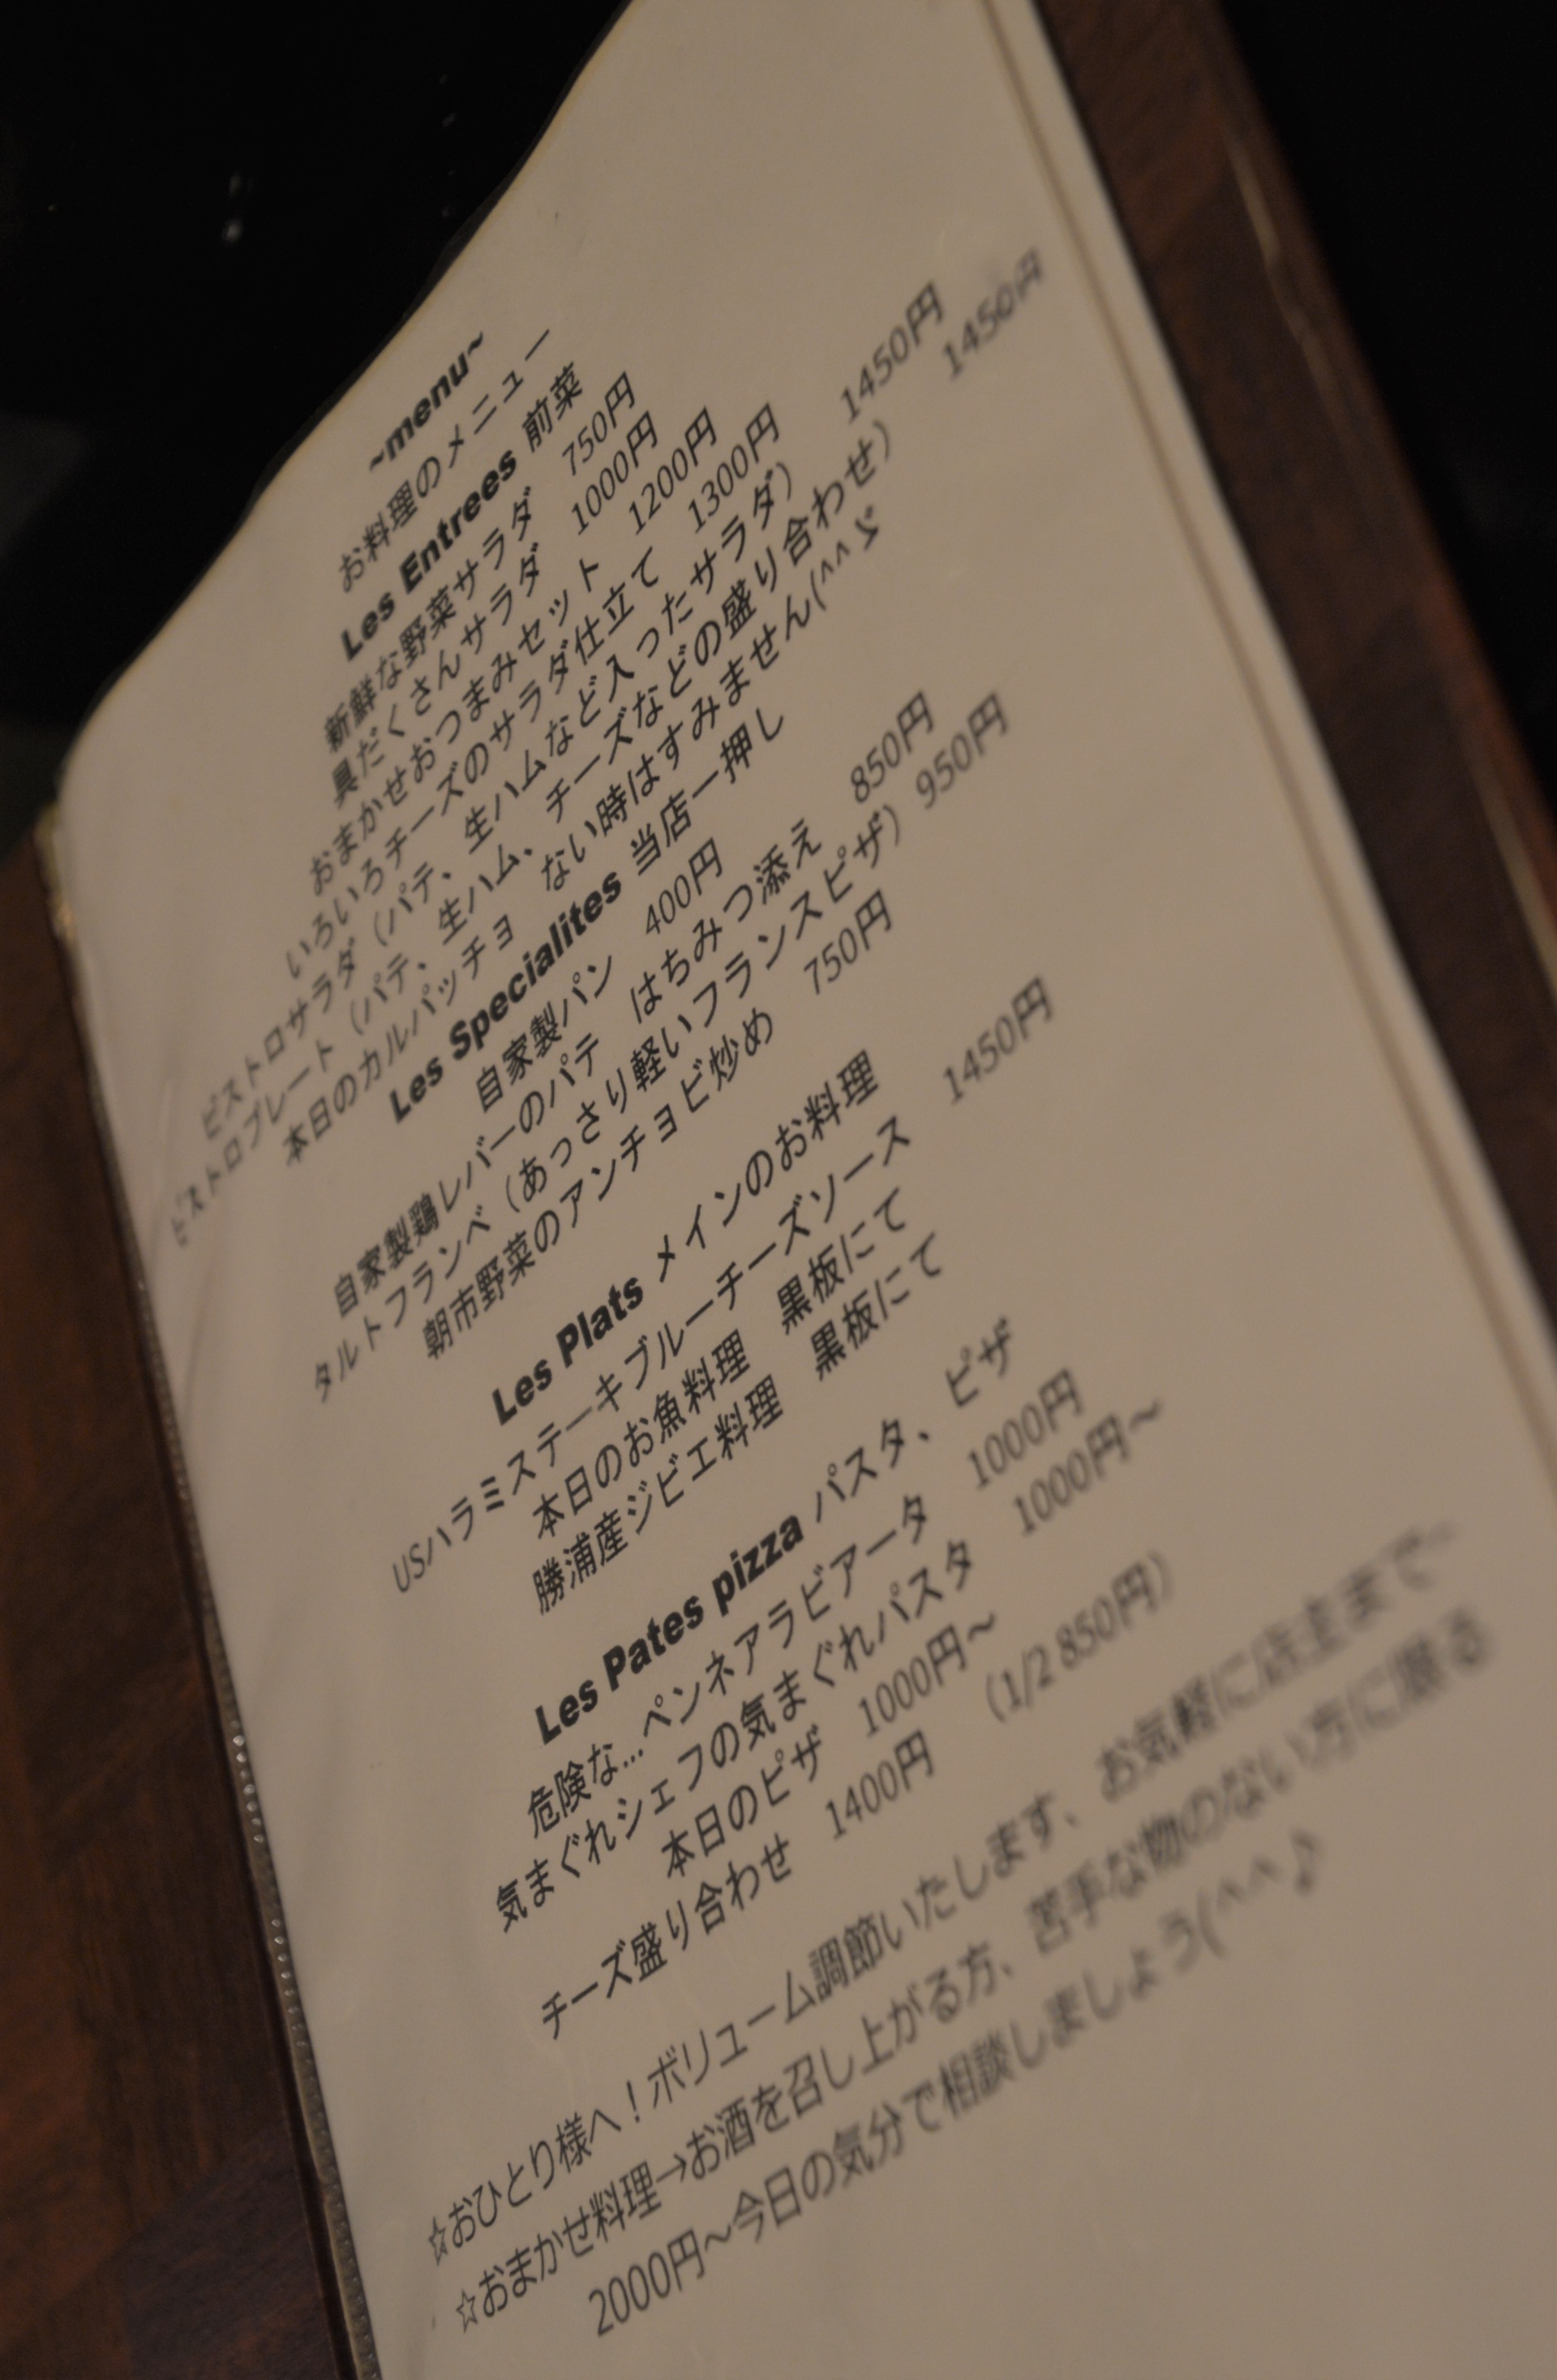 ~menu~
お料理のメニュー
Les Entrees 前菜
新鮮な野菜サラダ 750円
具だくさんサラダ 1000円
おまかせおつまみセット 1200円
いろいろチーズのサラダ仕立て 1300円
ビストロサラダ（パテ、生ハムなど入ったサラダ） 1450円
ビストロプレート（パテ、生ハム、チーズなどの盛り合わせ） 1450円
本日のカルパッチョ ない時はすみません(^^ゞ
Les Specialites 当店一押し
自家製パン 400円
自家製鶏レバーのパテ はちみつ添え 850円
タルトフランベ（あっさり軽いフランスピザ）950円
朝市野菜のアンチョビ炒め 750円
Les Plats メインのお料理
USハラミステーキブルーチーズソース 1450円
本日のお魚料理 黒板にて
勝浦産ジビエ料理 黒板にて
Les Pates pizza パスタ、ピザ
危険な…ペンネアラビアータ 1000円
気まぐれシェフの気まぐれパスタ 1000円～
本日のピザ 1000円～
チーズ盛り合わせ 1400円 （1/2 850円）
☆おひとり様へ！ボリューム調節いたします、お気軽に店主まで～
☆おまかせ料理→お酒を召し上がる方、苦手な物のない方に限る
2000円～今日の気分で相談しましょう(^^♪